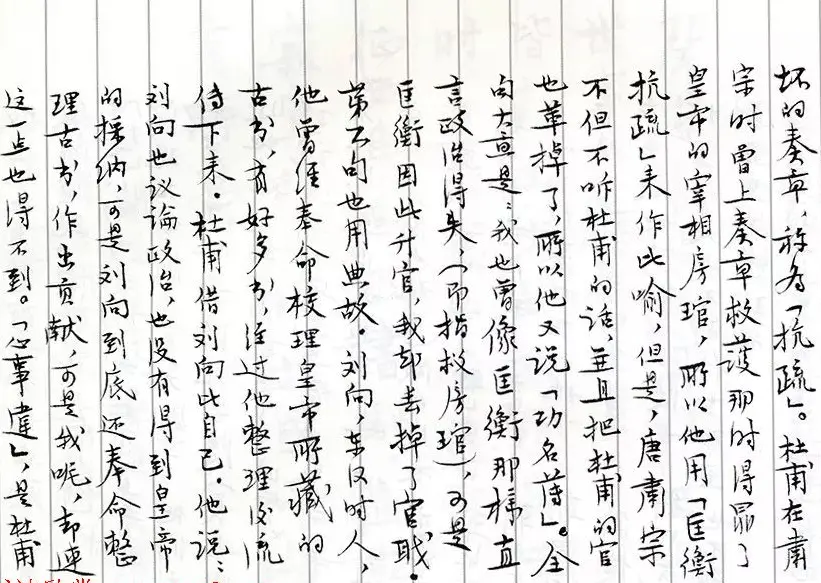 坏的奏章，称为「抗疏」。杜甫在肃
宗时曾上奏章救护那时得罪了
皇帝的宰相房琯，所以他用「匡衡
抗疏」来作比喻，但是，唐肃宗
不但不听杜甫的话，并且把杜甫的官
也革掉了，所以他又说「功名薄」。全
句大意是：我也曾像匡衡那样直
言政治得失，（即指救房琯），可是
匡衡因此升官，我却丢掉了官职。
第六句也用典故。刘向，东汉时人，
他曾经奉命校理皇帝所藏的
古书，有好多书，经过他整理后流
传下来。杜甫借刘向比自己。他说：
刘向也议论政治，也没有得到皇帝
的採纳，可是刘向到底还奉命整
理古书，作出贡献，可是我呢，却连
这一点也得不到。「心事违」，是杜甫